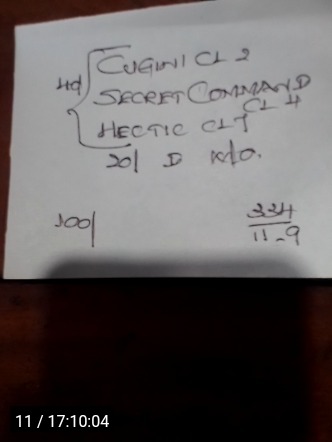 CUGINI CL 2
SECRET COMMAND CL 4
HECTIC CL 7
20/ D
100/
334
11-9
11 / 17:10:04